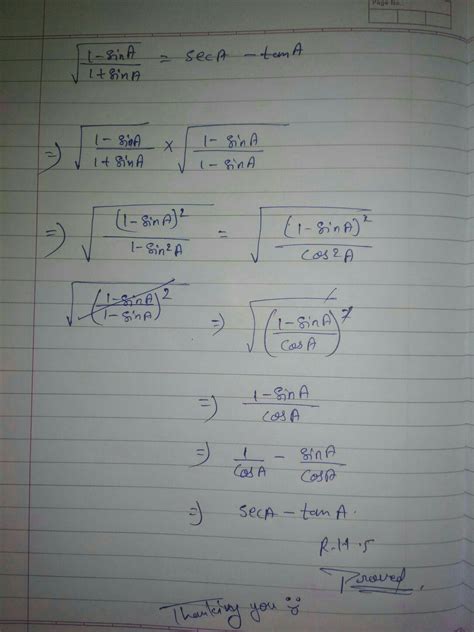 Page No.
√((1-sinA)/(1+sinA)) = secA - tanA
⇒) √((1-sinA)/(1+sinA)) × √((1-sinA)/(1-sinA))
⇒) √((1-sinA)²/(1-sin²A)) = √((1-sinA)²/cos²A)
√((1-sinA)/(1-sinA))² ⇒) √((1-sinA)/cosA)²
⇒) (1-sinA)/cosA
⇒) 1/cosA - sinA/cosA
⇒) secA - tanA.
R.H.S
Proved.
Thanking you